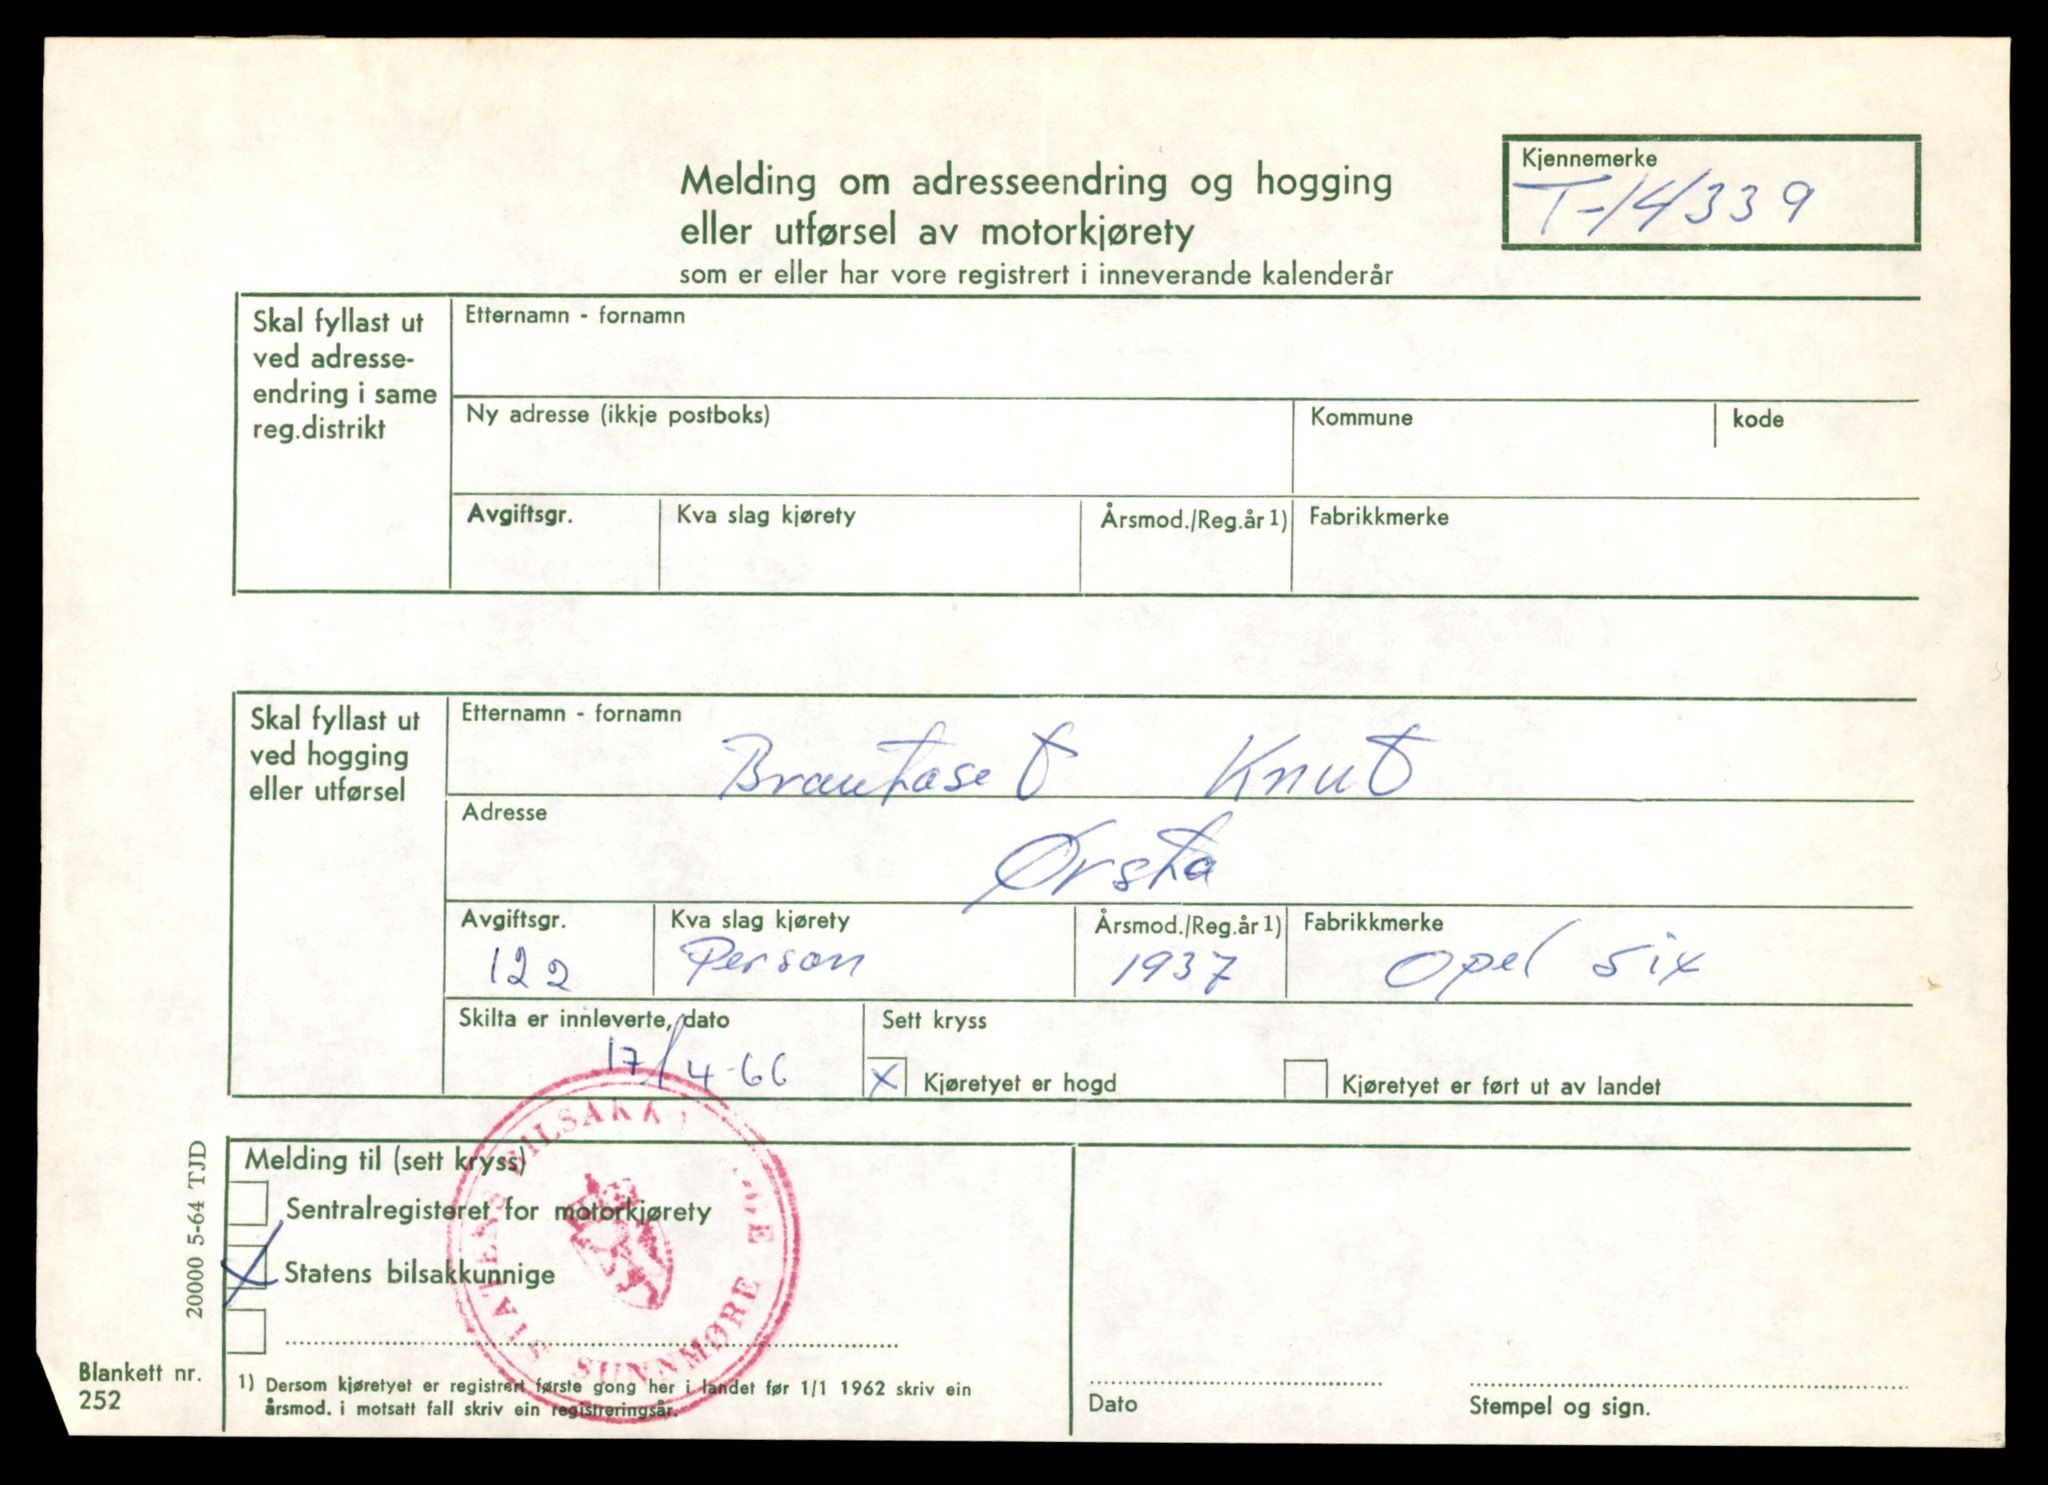 Melding om adresseendring og hogging
eller utførsel av motorkjørety
som er eller har vore registrert i inneverande kalenderår
Kjennemerke
T-14339
Skal fyllast ut
ved adresse-
endring i same
reg.distrikt
Etternamn - fornamn
Ny adresse (ikkje postboks)
Kommune
kode
Avgiftsgr.
Kva slag kjørety
Årsmod./Reg.år 1)
Fabrikkmerke
Skal fyllast ut
ved hogging
eller utførsel
Etternamn - fornamn
Brautaset Knut
Adresse
Ørsta
Avgiftsgr.
122
Kva slag kjørety
Person
Årsmod./Reg.år 1)
1937
Fabrikkmerke
Opel six
Skilta er innleverte, dato
17/4-66
Sett kryss
x Kjøretyet er hogd
Kjøretyet er ført ut av landet
Melding til (sett kryss)
Sentralregisteret for motorkjørety
x Statens bilsakkunnige
STATENS BILSAKK
SUNNMØRE
20000 5-64 TJD
Blankett nr.
252
1) Dersom kjøretyet er registrert første gong her i landet før 1/1 1962 skriv ein
årsmod. i motsatt fall skriv ein registreringsår.
Dato
Stempel og sign.